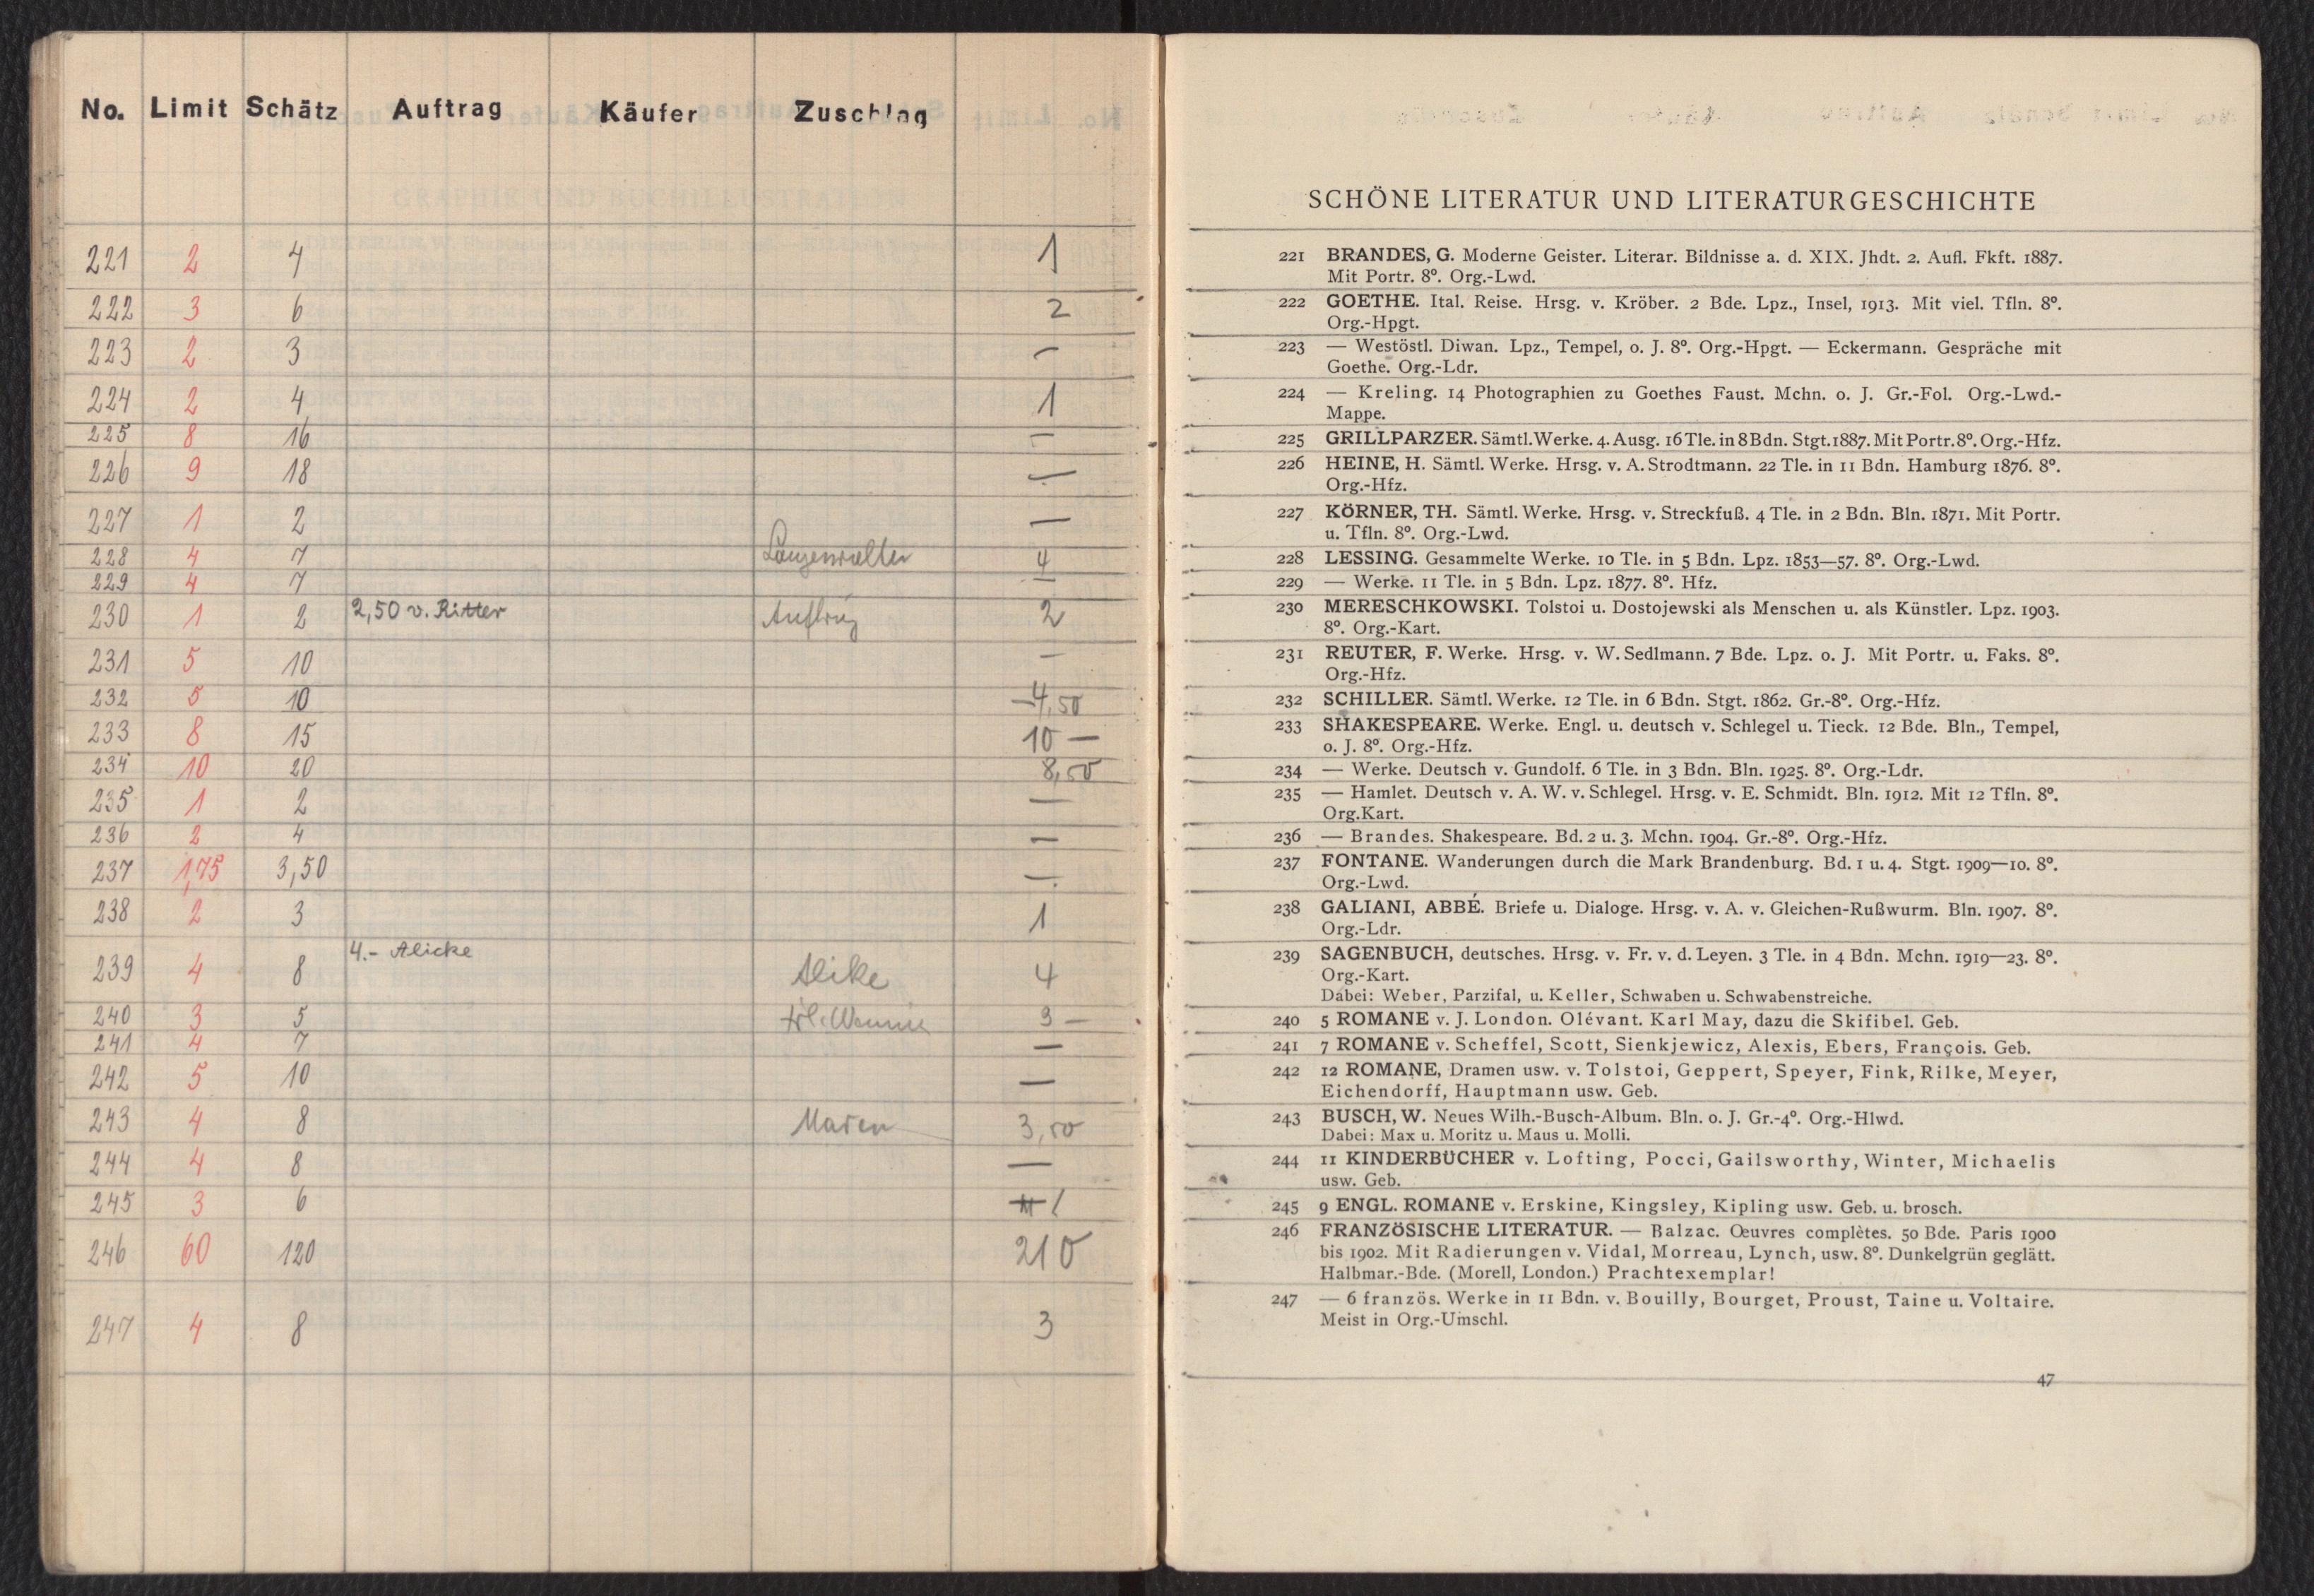 No. Limit Schätz Auftrag Käufer Zuschlag
221 2 4 1
222 3 6 2
223 2 3 —
224 2 4 1
225 8 16 —
226 9 18 —
227 1 2 —
228 4 7 Langenwalter 4
229 4 7 —
230 1 2 2,50 v. Ritter Auftrag 2
231 5 10 —
232 5 10 4,50
233 8 15 10 —
234 10 20 8,50
235 1 2 —
236 2 4 —
237 1,75 3,50 —
238 2 3 1
239 4 8 4.- Alicke Alike 4
240 3 5 3 —
241 4 7 —
242 5 10 —
243 4 8 3,50
244 4 8 —
245 3 6 1
246 60 120 210
247 4 8 3
SCHÖNE LITERATUR UND LITERATURGESCHICHTE
221 BRANDES, G. Moderne Geister. Literar. Bildnisse a. d. XIX. Jhdt. 2. Aufl. Fkft. 1887.
Mit Portr. 8º. Org.-Lwd.
222 GOETHE. Ital. Reise. Hrsg. v. Kröber. 2 Bde. Lpz., Insel, 1913. Mit viel. Tfln. 8º.
Org.-Hpgt.
223 — Westöstl. Diwan. Lpz., Tempel, o. J. 8º. Org.-Hpgt. — Eckermann. Gespräche mit
Goethe. Org.-Ldr.
224 — Kreling. 14 Photographien zu Goethes Faust. Mchn. o. J. Gr.-Fol. Org.-Lwd.-
Mappe.
225 GRILLPARZER. Sämtl. Werke. 4. Ausg. 16 Tle. in 8 Bdn. Stgt. 1887. Mit Portr. 8º. Org.-Hfz.
226 HEINE, H. Sämtl. Werke. Hrsg. v. A. Strodtmann. 22 Tle. in 11 Bdn. Hamburg 1876. 8º.
Org.-Hfz.
227 KÖRNER, TH. Sämtl. Werke. Hrsg. v. Streckfuß. 4 Tle. in 2 Bdn. Bln. 1871. Mit Portr.
u. Tfln. 8º. Org.-Lwd.
228 LESSING. Gesammelte Werke. 10 Tle. in 5 Bdn. Lpz. 1853—57. 8º. Org.-Lwd.
229 — Werke. 11 Tle. in 5 Bdn. Lpz. 1877. 8º. Hfz.
230 MERESCHKOWSKI. Tolstoi u. Dostojewski als Menschen u. als Künstler. Lpz. 1903.
8º. Org.-Kart.
231 REUTER, F. Werke. Hrsg. v. W. Sedlmann. 7 Bde. Lpz. o. J. Mit Portr. u. Faks. 8º.
Org.-Hfz.
232 SCHILLER. Sämtl. Werke. 12 Tle. in 6 Bdn. Stgt. 1862. Gr.-8º. Org.-Hfz.
233 SHAKESPEARE. Werke. Engl. u. deutsch v. Schlegel u. Tieck. 12 Bde. Bln., Tempel,
o. J. 8º. Org.-Hfz.
234 — Werke. Deutsch v. Gundolf. 6 Tle. in 3 Bdn. Bln. 1925. 8º. Org.-Ldr.
235 — Hamlet. Deutsch v. A. W. v. Schlegel. Hrsg. v. E. Schmidt. Bln. 1912. Mit 12 Tfln. 8º.
Org.Kart.
236 — Brandes. Shakespeare. Bd. 2 u. 3. Mchn. 1904. Gr.-8º. Org.-Hfz.
237 FONTANE. Wanderungen durch die Mark Brandenburg. Bd. 1 u. 4. Stgt. 1909—10. 8º.
Org.-Lwd.
238 GALIANI, ABBÉ. Briefe u. Dialoge. Hrsg. v. A. v. Gleichen-Rußwurm. Bln. 1907. 8º.
Org.-Ldr.
239 SAGENBUCH, deutsches. Hrsg. v. Fr. v. d. Leyen. 3 Tle. in 4 Bdn. Mchn. 1919—23. 8º.
Org.-Kart.
Dabei: Weber, Parzifal, u. Keller, Schwaben u. Schwabenstreiche.
240 5 ROMANE v. J. London. Olévant. Karl May, dazu die Skifibel. Geb.
241 7 ROMANE v. Scheffel, Scott, Sienkjewicz, Alexis, Ebers, François. Geb.
242 12 ROMANE, Dramen usw. v. Tolstoi, Geppert, Speyer, Fink, Rilke, Meyer,
Eichendorff, Hauptmann usw. Geb.
243 BUSCH, W. Neues Wilh.-Busch-Album. Bln. o. J. Gr.-4º. Org.-Hlwd.
Dabei: Max u. Moritz u. Maus u. Molli.
244 11 KINDERBÜCHER v. Lofting, Pocci, Gailsworthy, Winter, Michaelis
usw. Geb.
245 9 ENGL. ROMANE v. Erskine, Kingsley, Kipling usw. Geb. u. brosch.
246 FRANZÖSISCHE LITERATUR. — Balzac. Œuvres complètes. 50 Bde. Paris 1900
bis 1902. Mit Radierungen v. Vidal, Morreau, Lynch, usw. 8º. Dunkelgrün geglätt.
Halbmar.-Bde. (Morell, London.) Prachtexemplar!
247 — 6 französ. Werke in 11 Bdn. v. Bouilly, Bourget, Proust, Taine u. Voltaire.
Meist in Org.-Umschl.
47